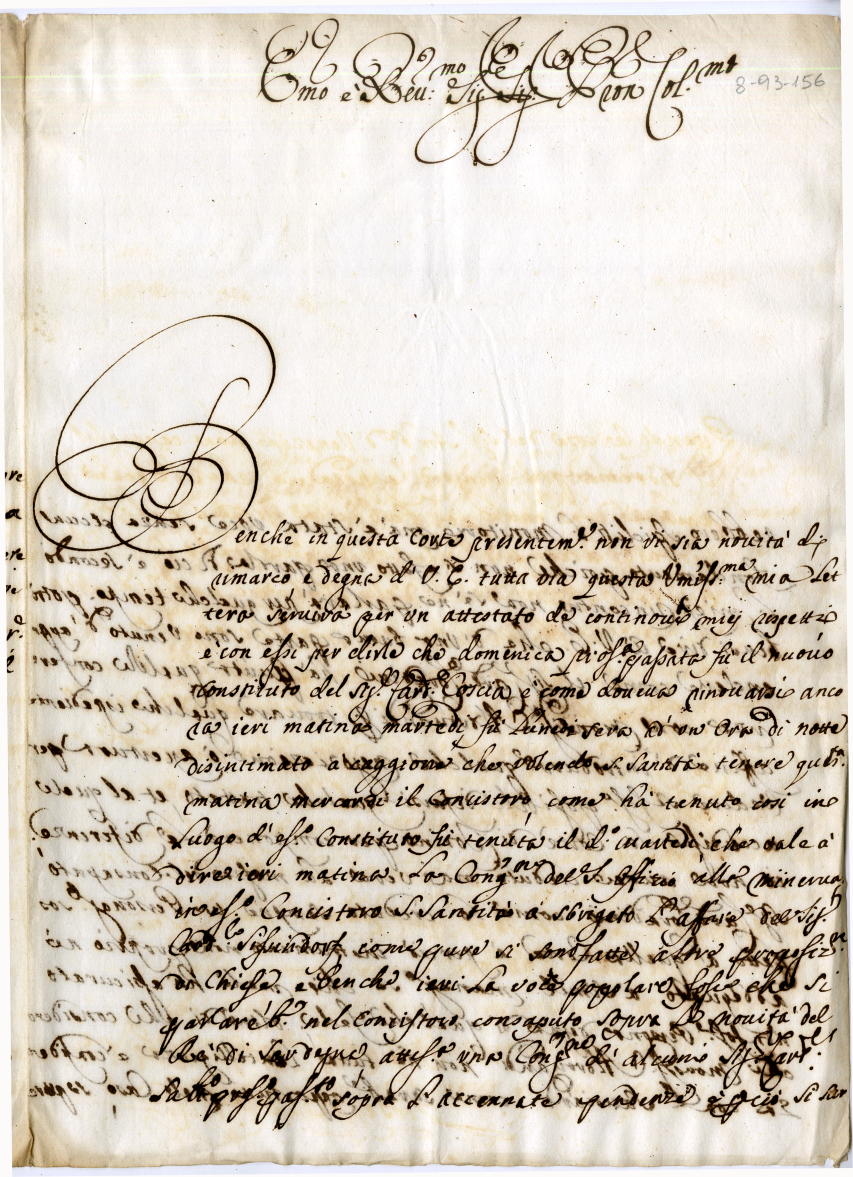 Em̃o e Reu:mo Sig.re Sig.re Pron Col.mo
8-93-156
Benche in questa Corte presentem.e non vi sia nouità di
rimarco e degna d' V. E. tutta uia questa Vmiss.ma mia Let
tera seruirà per vn attestato de continoui miej rispetti
e con essi per dirle che domenica pros.a passata fù il nuouo
constituto del Sig.r Card. Coscia e come doueua rinouarsi anco
ra ieri matina martedi fù Lunedi sera ad vn Ora di notte
disintimato a caggione che volendo S. Santità tenere quest.a
matina mercordi il Concistoro come hà tenuto così in
Luogo d' ess.o Constituto fù tenuta il d.o martedi che vale à
dire ieri matina La Cong.ne del S. Offizio alla minerua
in ess.o Concistoro S. Santità à sbrigato l' affare del Sig.r
Card.le come pure si sono fatte altre proposiz.ni
di Chiese, e benche ieri La voce popolare fosse che si
parlareb.e nel Concistoro consaputo sopra le nouità del
Rè di Sardegna attes.a vna Cong.ne d' alcuni Sig.ri Card.li
Sab.o pros.o pas.to sopra l' accennate pendenze e per ciò si